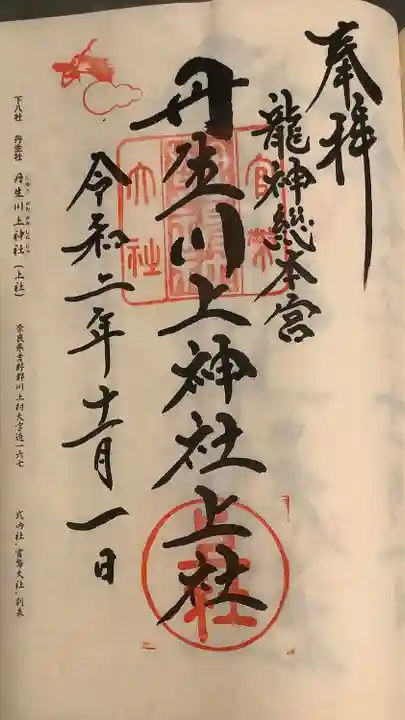 奉拝
龍神総本宮
丹生川上神社上社
令和二年十一月一日
官幣
大社
上社
下八社 丹生社 丹生川上神社(上社) 奈良県吉野郡川上村大字迫一六七 式内社・官幣大社・別表